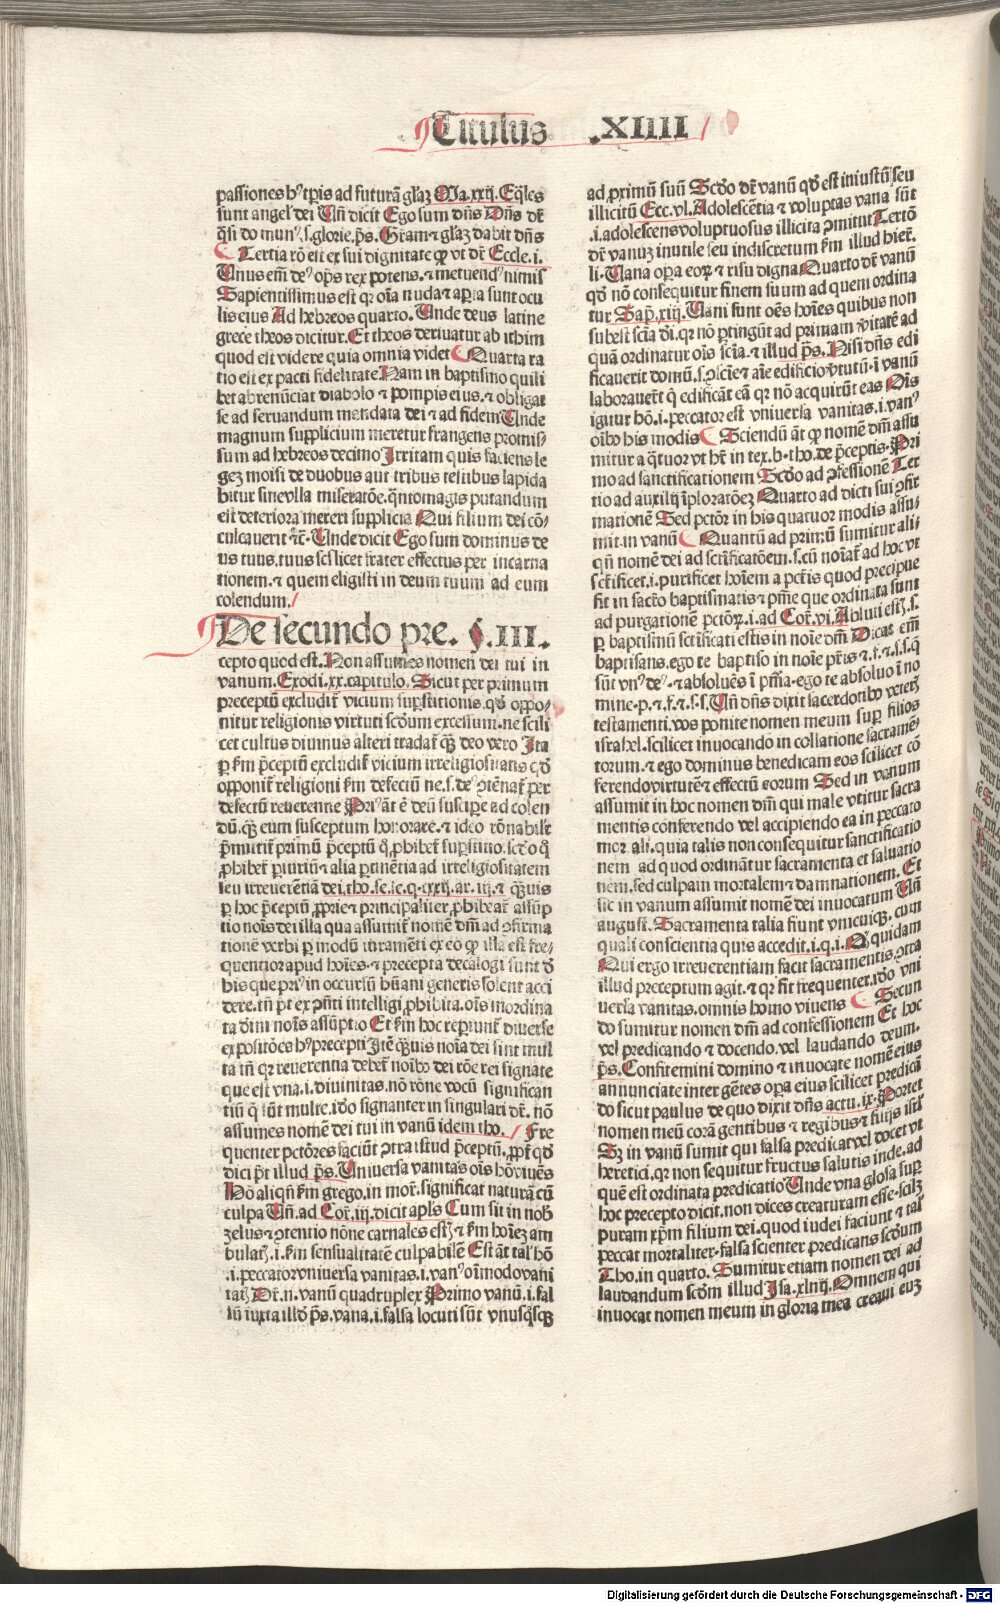 Titulus .XIIII
passiones hꝰ tꝑis ad futurã gl'aꝫ Ma.xxij. Eq̃les
sunt angel' dei Uñ dicit Ego sum dñs Dñs dt̃
q̃si do munꝰ.s.glorie.p̄s. Gram ⁊ gl'aꝫ dabit dñs
Tertia rõ est ex sui dignitate ꝙ vt dr̃ Eccle.i.
Unus em̃ deꝰ op̃s rex potens.⁊ metuendꝰ nimis
Sapientissimus est qꝛ oĩa nuda ⁊ aꝑta sunt ocu
lis eius Ad hebreos quarto. Unde deus latine
grece theos dicitur. Et theos deriuatur ab ithim
quod est videre quia omnia videt Quarta ra
tio est ex pacti fidelitate Nam in baptismo quili
bet abrenũciat diabolo ⁊ pompis eius.⁊ obligat
se ad seruandum mãdata dei ⁊ ad fidem Unde
magnum supplicium meretur frangens promis/
sum ad hebreos decimo Irritam quis faciens le
geꝫ moisi de duobus aut tribus testibus lapida
bitur sine vlla miseratõe.q̃ntomagis putandum
est deteriora mereri supplicia Qui filium dei cõ/
culcauerit ⁊c̃. Unde dicit Ego sum dominus de
us tuus.tuus scs̃licet frater effectus per incarna
tionem.⁊ quem eligisti in deum tuum ad eum
colendum.
De secundo pre. §.III.
cepto quod est. Non assumes nomen dei tui in
vanum. Exodi.xx.capitulo. Sicut per primum
preceptũ excludit̃ vicium suꝑstitionis.qd' oppo/
nitur religionis virtuti scđum excessum.ne scili
cet cultus diuinus alteri tradat̃ q̃ꝫ deo vero Ita
ꝑ km̃ p̃ceptũ excludit̃ vicium irreligiositatis qd'
opponit̃ religioni km̃ defectũ ne.s.deꝰ ꝯtẽnat̃ per
defectũ reuerentie Priꝰ aũt ẽ deũ suscipe ad colen
dũ.q̃ꝫ eum susceptum honorare.⁊ ideo rõnabilit̃
p̃mittit̃ primũ p̃ceptũ q̃ ꝓhibet̃ suꝑstitio.scđo q̃
ꝓhibet̃ ꝑiuriũ ⁊ alia ꝑtinẽtia ad irreligiositatem
seu irreuerẽtiã dei.tho.se.se.q.cxxij.ar.iij.⁊ q̃ꝫuis
ꝑ hoc p̃ceptũ ꝓprie ⁊ principaliter ꝓhibeat̃ assũp
tio nois dei illa qua assumit̃ nomẽ dm̃ ad ꝯfirma
tionẽ verbi ꝑ modũ iuramẽti ex eo ꝙ illa est fre/
quentior apud hoĩes.⁊ precepta decalogi sunt d'
his que priꝰ in occursũ hũani generis solent acci
dere.tñ pt̃ ex ꝯñti intelligi ꝓhibita.ois inordina
ta diuini nois assũptio Et km̃ hoc reꝑiunt̃ diuerse
expositões hꝰ precepti Itẽ q̃ꝫuis noĩa dei sint mul
ta tñ qꝛ reuerentia debet̃ noibꝰ dei rõe rei signate
que est vna.i.diuinitas.nõ rõne vocũ significan
tiũ q̃ sũt multe.iđo signanter in singulari dr̃. nõ
assumes nomẽ dei tui in vanũ idem tho. Fre
quenter pctõres faciũt ꝯtra istud p̃ceptũ.ꝓpt̃ qđ
dici pt̃ illud p̄s. Uniuersa vanitas ois hõ viuẽs
Hõ aliqñ km̃ grego.in mor̃.significat naturã cũ
culpa Uñ.ad Cor̃.iij.dicit apl's Cum sit in nob̃
zelus ⁊ ꝯtentio nõne carnales estꝫ ⁊ km̃ hoĩeꝫ am
bulatꝫ.i.km̃ sensualitatẽ culpabilẽ Est aũt tal' hõ
.i.peccator vniuersa vanitas.i.vanꝰ oĩmodo vani
tatꝫ Dr̃.n.vanũ quadruplex Primo vanũ.i.fal
sũ iuxta illđ p̄s.vana.i.falsa locuti sũt vnusq̃sqꝫ
ad ꝓximũ suũ Scđo dr̃ vanũ qđ est iniustũ seu
illicitũ Ecc.vl.Adolescẽtia ⁊ voluptas vana sũt
.i.adolescens voluptuosus illicita ꝯmitit Tertõ
dr̃ vanuꝫ inutile seu indiscretum km̃ illud hier̃.
li. Uana oꝑa eoꝝ ⁊ risu digna Quarto dr̃ vanũ
qđ nõ consequitur finem suum ad quem ordina
tur Sap̃.xiij. Uani sunt oẽs hoĩes quibus non
subest sciã di.qꝛ nõ ꝑtingũt ad primam v̾itatẽ ad
quã ordinatur ois sciã.⁊ illud p̄s. Nisi dñs edi
ficauerit domũ.s.ꝯscĩe ⁊ aĩe edificio v̾tutũ.ĩ vanũ
laborauer̃t q̃ edificãt eã qꝛ nõ acquirũt eas Ois
igitur hõ.i.peccator est vniuersa vanitas.i.vanꝰ
oĩbꝰ his modis Sciendũ aũt ꝙ nomẽ dm̃ assu
mitur a q̃tuor vt hr̃ in tex.b.tho.de p̃ceptis. Pri
mo ad sanctificationem Scđo ad ꝯfessionẽ Ter
tio ad auxilij ĩploratõeꝫ Quarto ad dicti sui ꝯfir
mationẽ Sed pctõr in his quatuor modis assu/
mit in vanũ Quantũ ad primũ sumitur ali/
qñ nomẽ dei ad sctĩficatõem.s.cũ noĩat̃ ad hoc vt
sct̃ificet.i.purificet hoĩem a pctĩs quod precipue
fit in sacro baptismatis ⁊ pnĩe que ordinata sunt
ad purgationẽ pctõꝝ.i.ad Cor̃.vi. Abluti estꝫ.s.
ꝑ baptismũ sctĩficati estis in noĩe dm̃ Dicat em̃
baptisans.ego te baptiso in noĩe pr̃is ⁊.f.⁊.s.s.q̃
sũt vnꝰ deꝰ.⁊ absoluẽs ĩ pnĩa.ego te absoluo ĩ no
mine.p.⁊.f.⁊.s.s. Uñ dñs dixit sacerdotibꝰ veterꝫ
testamenti.vos ponite nomen meum suꝑ filios
israhel.scilicet inuocando in collatione sacramẽ/
torum.⁊ ego dominus benedicam eos scilicet cõ
ferendo virtutẽ ⁊ effectũ eorum Sed in vanum
assumit in hoc nomen dm̃ qui male vtitur sacra
mentis conferendo vel accipiendo ea in peccato
mortali.quia talis non consequitur sanctificatio
nem ad quod ordinãtur sacramenta et saluatio
nem.sed culpam mortalem ⁊ damnationem. Et
sic in vanum assumit nomẽ dei inuocatum Uñ
august. Sacramenta talia fiunt vnicuiqꝫ.cum
quali conscientia quis accedit.i.q.i. Qꝫ quidam
Qui ergo irreuerentiam facit sacramentis.ꝯtra
illud preceptum agit.⁊ qꝛ fit frequenter.iđo vni
uersa vanitas.omnis homo viuens Secun
do sumitur nomen dm̃ ad confessionem Et hoc
vel predicando ⁊ docendo.vel laudando deum.
p̄s. Confitemini domino ⁊ inuocate nomẽ eius
annunciate inter gẽtes oꝑa eius scilicet predicã
do sicut paulus de quo dixit dñs actu.ix. Portet
nomen meũ corã gentibus ⁊ regibus ⁊ filijs isr̃l
Sꝫ in vanũ sumit qui falsa predicat vel docet vt
heretici.qꝛ non sequitur fructus salutis inde.ad
quẽ est ordinata predicatio Unde vna glosa suꝑ
hoc precepto dicit.non dices creaturam esse.scilꝫ
puram xp̃m filium dei.quod iudei faciunt ⁊ tal'
peccat mortaliter.falsa scienter predicans scđum
Tho.in quarto. Sumitur etiam nomen dei ad
laudandum scđm illud Isa.xliij. Omnem qui
inuocat nomen meum in gloria mea creaui euꝫ
Digitalisierung gefördert durch die Deutsche Forschungsgemeinschaft - DFG